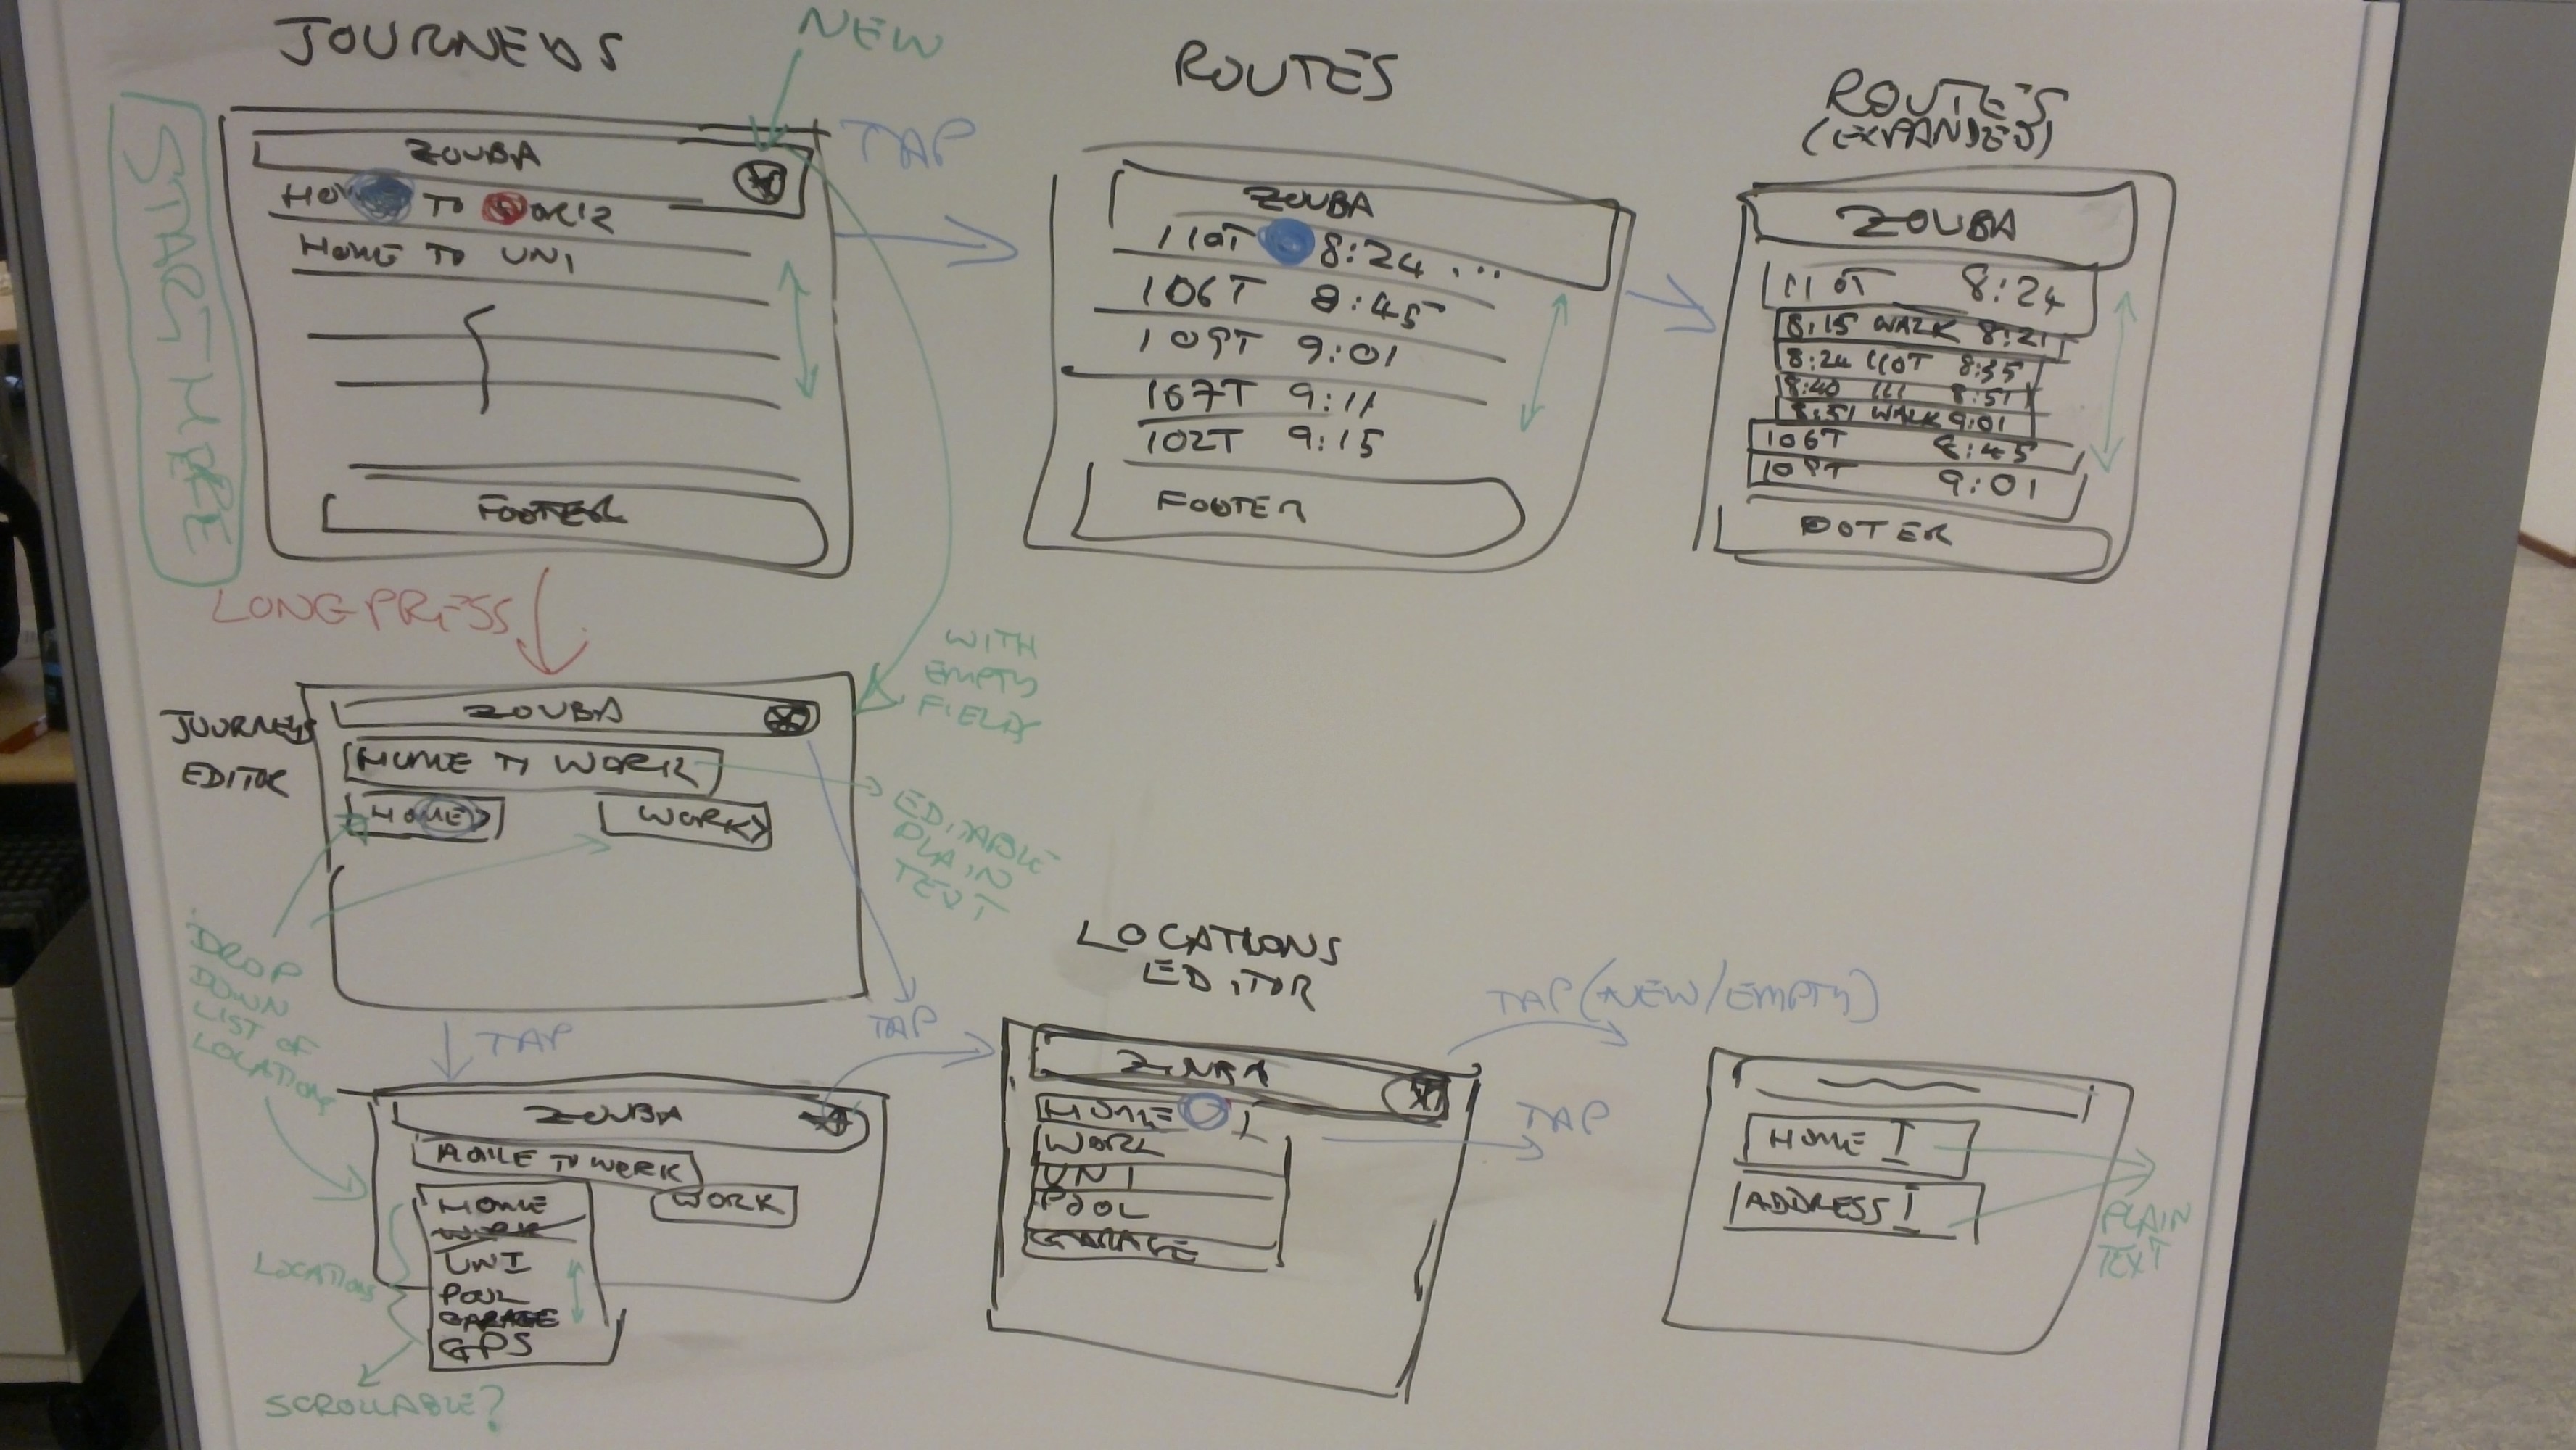 JOURNEYS
NEW
START HERE
ZOUBA
HO TO WORK
HOME TO UNI
FOOTER
TAP
ROUTES
ZOUBA
110T 8:24 ...
106T 8:45
109T 9:01
167T 9:11
102T 9:15
FOOTER
ROUTES
(EXPANDED)
ZOUBA
110T 8:24
8:15 WALK 8:21
8:24 110T 8:35
8:40 111 8:51
8:51 WALK 9:01
106T 8:45
109T 9:01
FOOTER
LONG PRESS
WITH
EMPTY
FIELDS
JOURNEYS
EDITOR
ZOUBA
HOME TO WORK
HOME >
WORK >
EDITABLE
PLAIN
TEXT
DROP
DOWN
LIST OF
LOCATIONS
TAP
TAP
ZOUBA
HOME TO WORK
HOME
WORK
UNI
POOL
GARAGE
GPS
WORK
LOCATIONS
SCROLLABLE?
LOCATIONS
EDITOR
ZOUBA
HOME I
WORK
UNI
POOL
GARAGE
TAP (NEW/EMPTY)
TAP
HOME I
ADDRESS I
PLAIN
TEXT